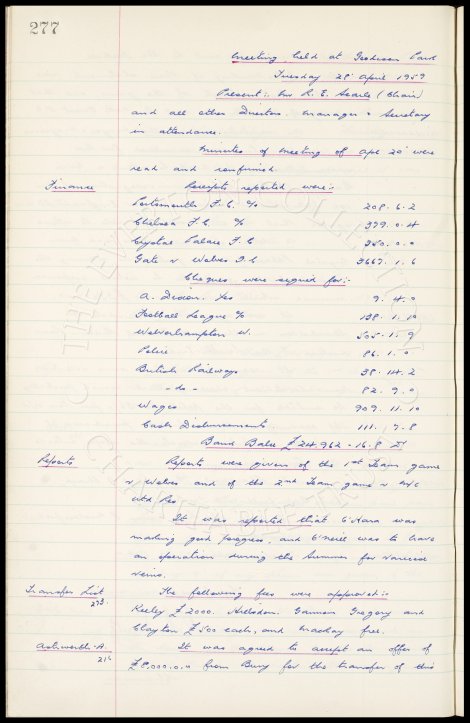 277
Meeting held at Goodison Park
Tuesday 28 April 1959
Present: Mr R. E. Searle (Chair)
and all other Directors. Manager & Secretary
in attendance.
Minutes of Meeting of Apl 20 were
read and confirmed.
Finance Receipts reported were:-
Portsmouth F.C. % 208. 6. 2
Chelsea F.C. % 379. 0. 4
Crystal Palace F.C 350. 0. 0
Gate v Wolves F.C 3667. 1. 6
Cheques were signed for:-
A. Dixon. 9. 4. 0
Football League % 138. 1. 10
Wolverhampton W. 505. 1. 9
Police 86. 1. 0
British Railways 38. 14. 2
-do- 82. 9. 0
Wages 909. 11. 10
Cash Disbursements. 111. 7. 8
Bank Balce £24,962-16.8
Reports Reports were given of the 1st Team game
v Wolves and of the 2nd Team game v M/c
Utd Res.
It was reported that O'Hara was
making good progress, and O'Neill was to have
an operation during the Summer for varicose
veins.
Transfer List The following fees were approved:-
Keeley £2000. Gannon Gregory and
Clayton £500 each, and Mackay free.
Ashworth. A. It was agreed to accept an offer of
£8,000.0.0 from Bury for the transfer of this
THE EVERTON COLLECTION
CHARITABLE TRUST